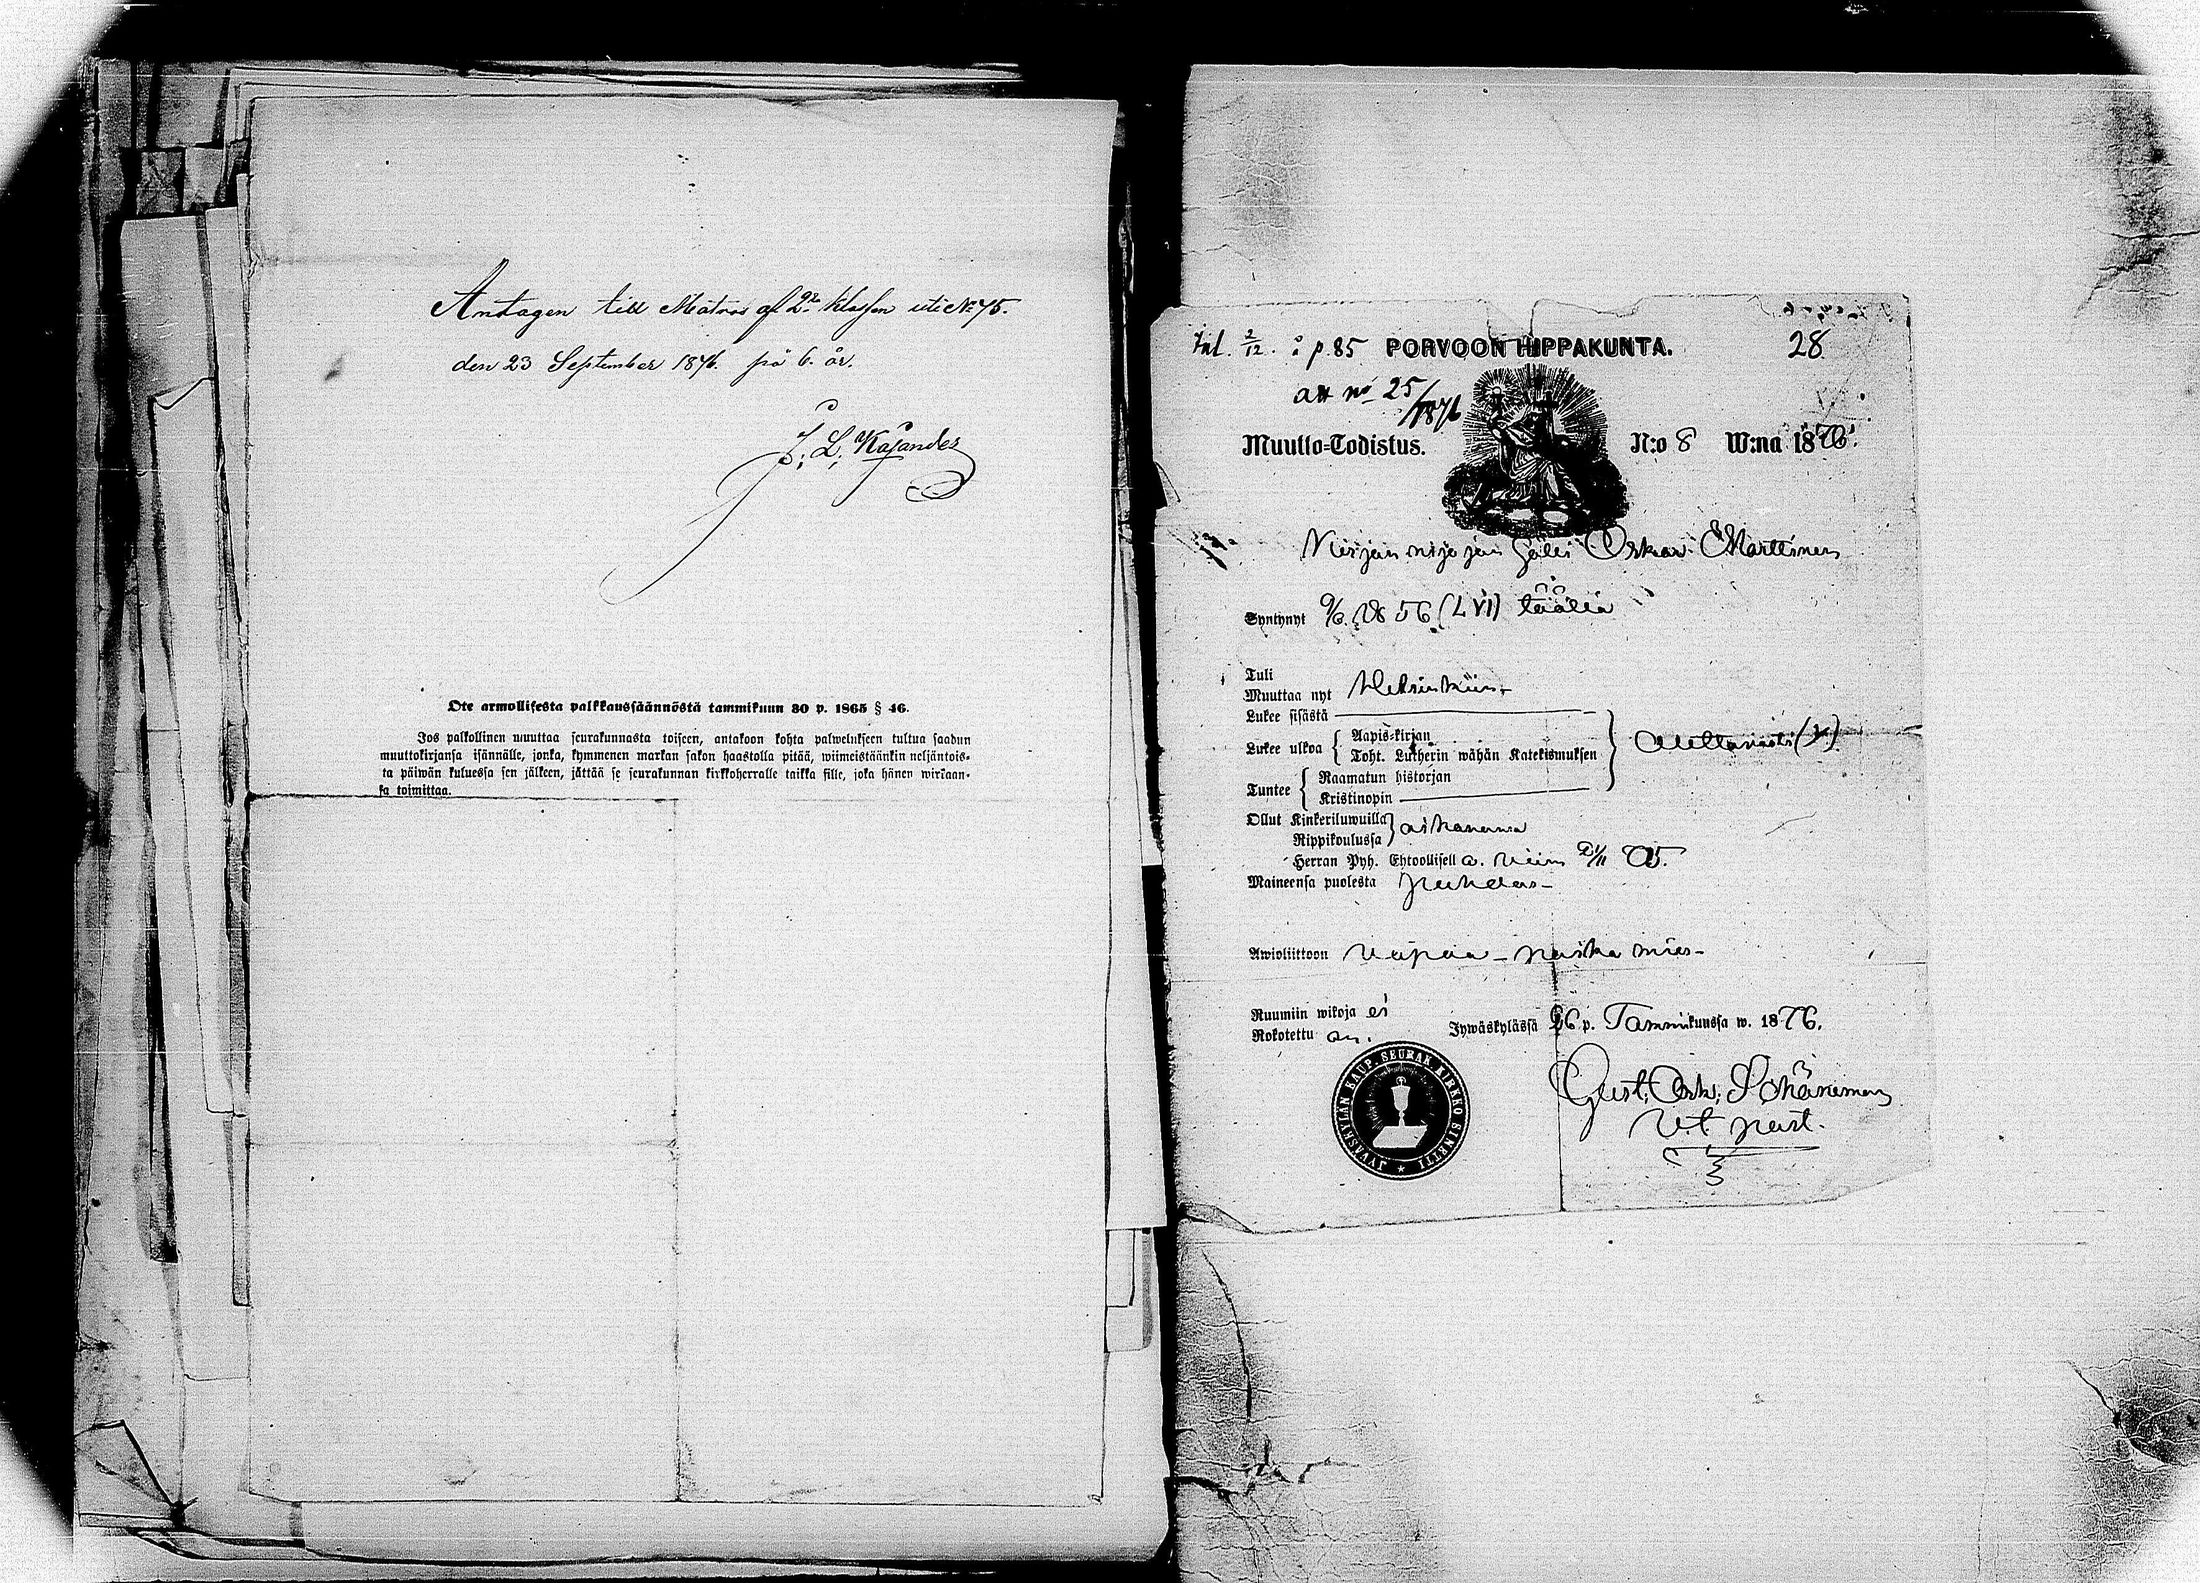 Antagen till Matros af 2:ª Klassen uti No 75.
den 23 September 1876. på 6. år.
J. L. Kajander
Ote armollisesta palkkaussäännöstä tammikuun 30 p. 1865 § 46.
Jos palkollinen muuttaa seurakunnasta toiseen, antakoon kohta palwelukseen tultua saadun
muuttokirjansa isännälle, jonka, kymmenen markan sakon haastolla pitää, wiimeistäänkin neljäntois-
ta päiwän kuluessa sen jälkeen, jättää se seurakunnan kirkkoherralle taikka sille, joka hänen wirkaan-
sa toimittaa.
Inl. 2/12. å p. 85 PORVOON HIPPAKUNTA. 28
att no 25/1876
Muutto-Todistus. N:o 8 W:na 1876.
Kirjan sitojan Sälli Oskar Marttinen
Syntynyt 9/6. 1856 (LVI) täällä
Tuli
Muuttaa nyt Helsinkiin.
Lukee sisästä
Lukee ulkoa { Aapis-kirjan
Toht. Lutherin wähän Katekismuksen
Tuntee { Raamatun historjan
Kristinopin
Ollut Kinkeriluwuilla
Rippikoulussa } aikanansa
Herran Pyh. Ehtoollisella. viim 21/11 75.
Maineensa puolesta puhdas-
Awioliittoon vapaa - poika mies-
Ruumiin wikoja ei
Rokotettu on. Jywäskylässä 26 p. Tammikuussa w. 1876.
Gust. Osk. Schöneman
v.t. past.
JYVÄSKYLÄN KAUP. SEURAK. KIRKKO SINETTI